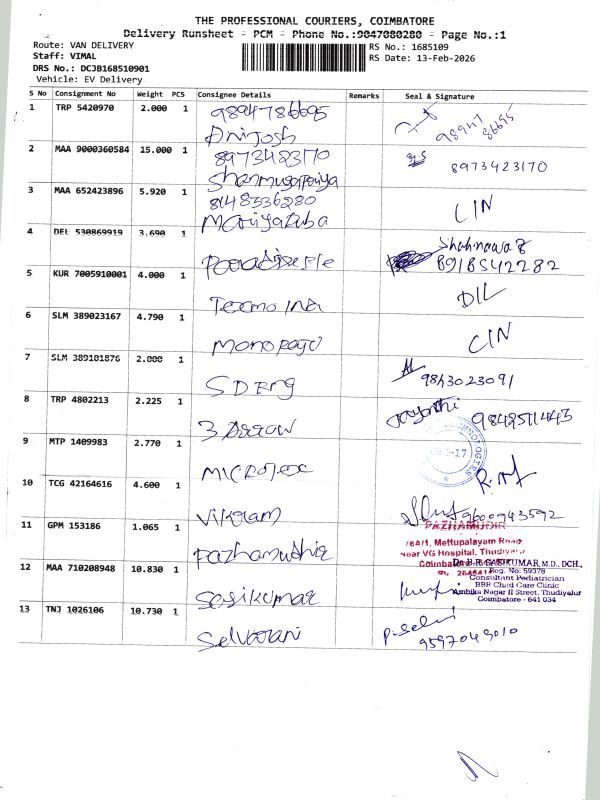 THE PROFESSIONAL COURIERS, COIMBATORE
Delivery Runsheet - PCM - Phone No.:9047080280 - Page No.:1
Route: VAN DELIVERY
RS No.: 1685109
Staff: VIMAL
RS Date: 13-Feb-2026
DRS No.: DCJB168510901
Vehicle: EV Delivery
S No Consignment No Weight PCS Consignee Details Remarks Seal & Signature
1 TRP 5420970 2.000 1 9894786695
98947 86695
2 MAA 9000360584 15.000 1 8973423170
8973423170
Shanmugapriya
3 MAA 652423896 5.920 1 8148336280
CIN
4 DEL 530869919 3.690 1
Shahnawaz
5 KUR 7005910001 4.000 1 Tecmo Ind
DIL
6 SLM 389023167 4.790 1
CIN
7 SLM 389101876 2.000 1 SD Eng
9843023091
8 TRP 4802213 2.225 1 3 Arrow
9 MTP 1409983 2.770 1 Microtex
10 TCG 42164616 4.600 1 Vikram
9600943592
11 GPM 153186 1.065 1 Pazhamudhir
PAZHAMUDIR
Mettupalayam Road
Near VG Hospital, Thudiyalur
12 MAA 710208948 10.830 1 Sasikumar
SASIKUMAR, M.D., DCH.,
Reg. No: 59378
Consultant Pediatrician
BBR Child Care Clinic
Ambika Nagar II Street, Thudiyalur
Coimbatore - 641 034
13 TNJ 1026106 10.730 1 Selvarani
P. Selvi
9597049010